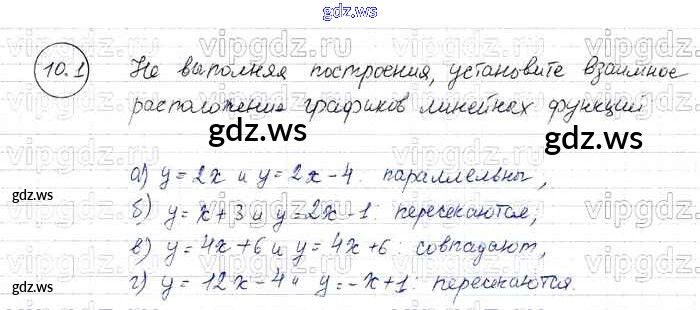 gdz.ws
10.1 Не выполняя построения, установите взаимное
расположение графиков линейных функций
gdz.ws
а) y = 2x и y = 2x - 4: параллельны,
б) y = x + 3 и y = 2x - 1: пересекаются;
в) y = 4x + 6 и y = 4x + 6: совпадают,
г) y = 12x - 4 и y = -x + 1: пересекаются.
gdz.ws
gdz.ws
gdz.ws
vipgdz.ru